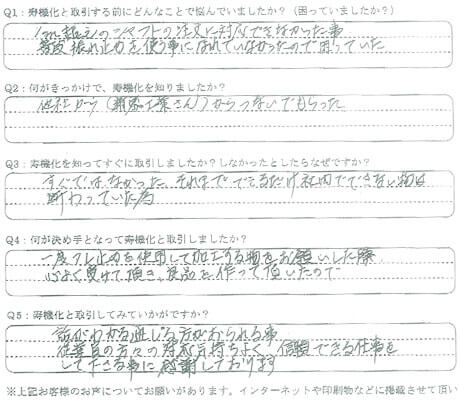 Q1：寿機化と取引する前にどんなことで悩んでいましたか？（困っていましたか？）
1m超えのシャフトの注文に対応できなかった事
普段振れ止めを使う事になれていなかったので困っていた
Q2：何がきっかけで、寿機化を知りましたか？
他社から（工業さん）からつないでもらった
Q3：寿機化を知ってすぐに取引しましたか？しなかったとしたらなぜですか？
すぐではなかった、それまでできるだけ社内でできない物は
断わっていた為
Q4：何が決め手となって寿機化と取引しましたか？
一度フレ止めを使用して加工する物をお願いした際
心よく受けて頂き、良品を作って頂いたので
Q5：寿機化と取引してみていかがですか？
話がわかる通じる方がおられる事
従業員の方々の対応気持ちよく、信頼できる仕事を
して下さる事に感謝しております
※上記お客様のお声についてお願いがあります。インターネットや印刷物などに掲載させて頂い